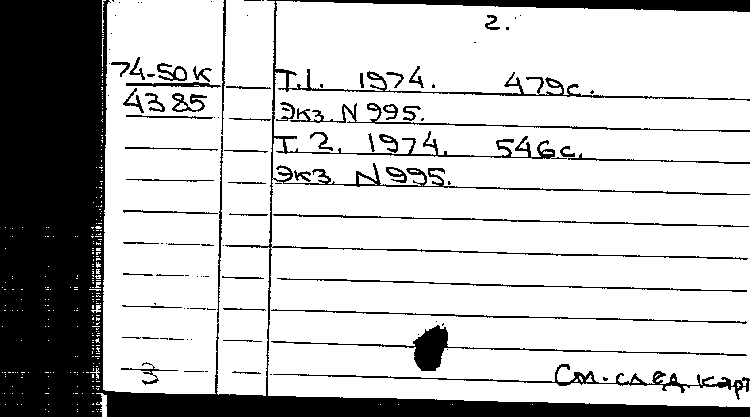 2.
74-50К Т.1. 1974. 479с.
4385 Экз. N 995.
Т. 2. 1974. 546с.
Экз. N 995.
3 См. след. карт